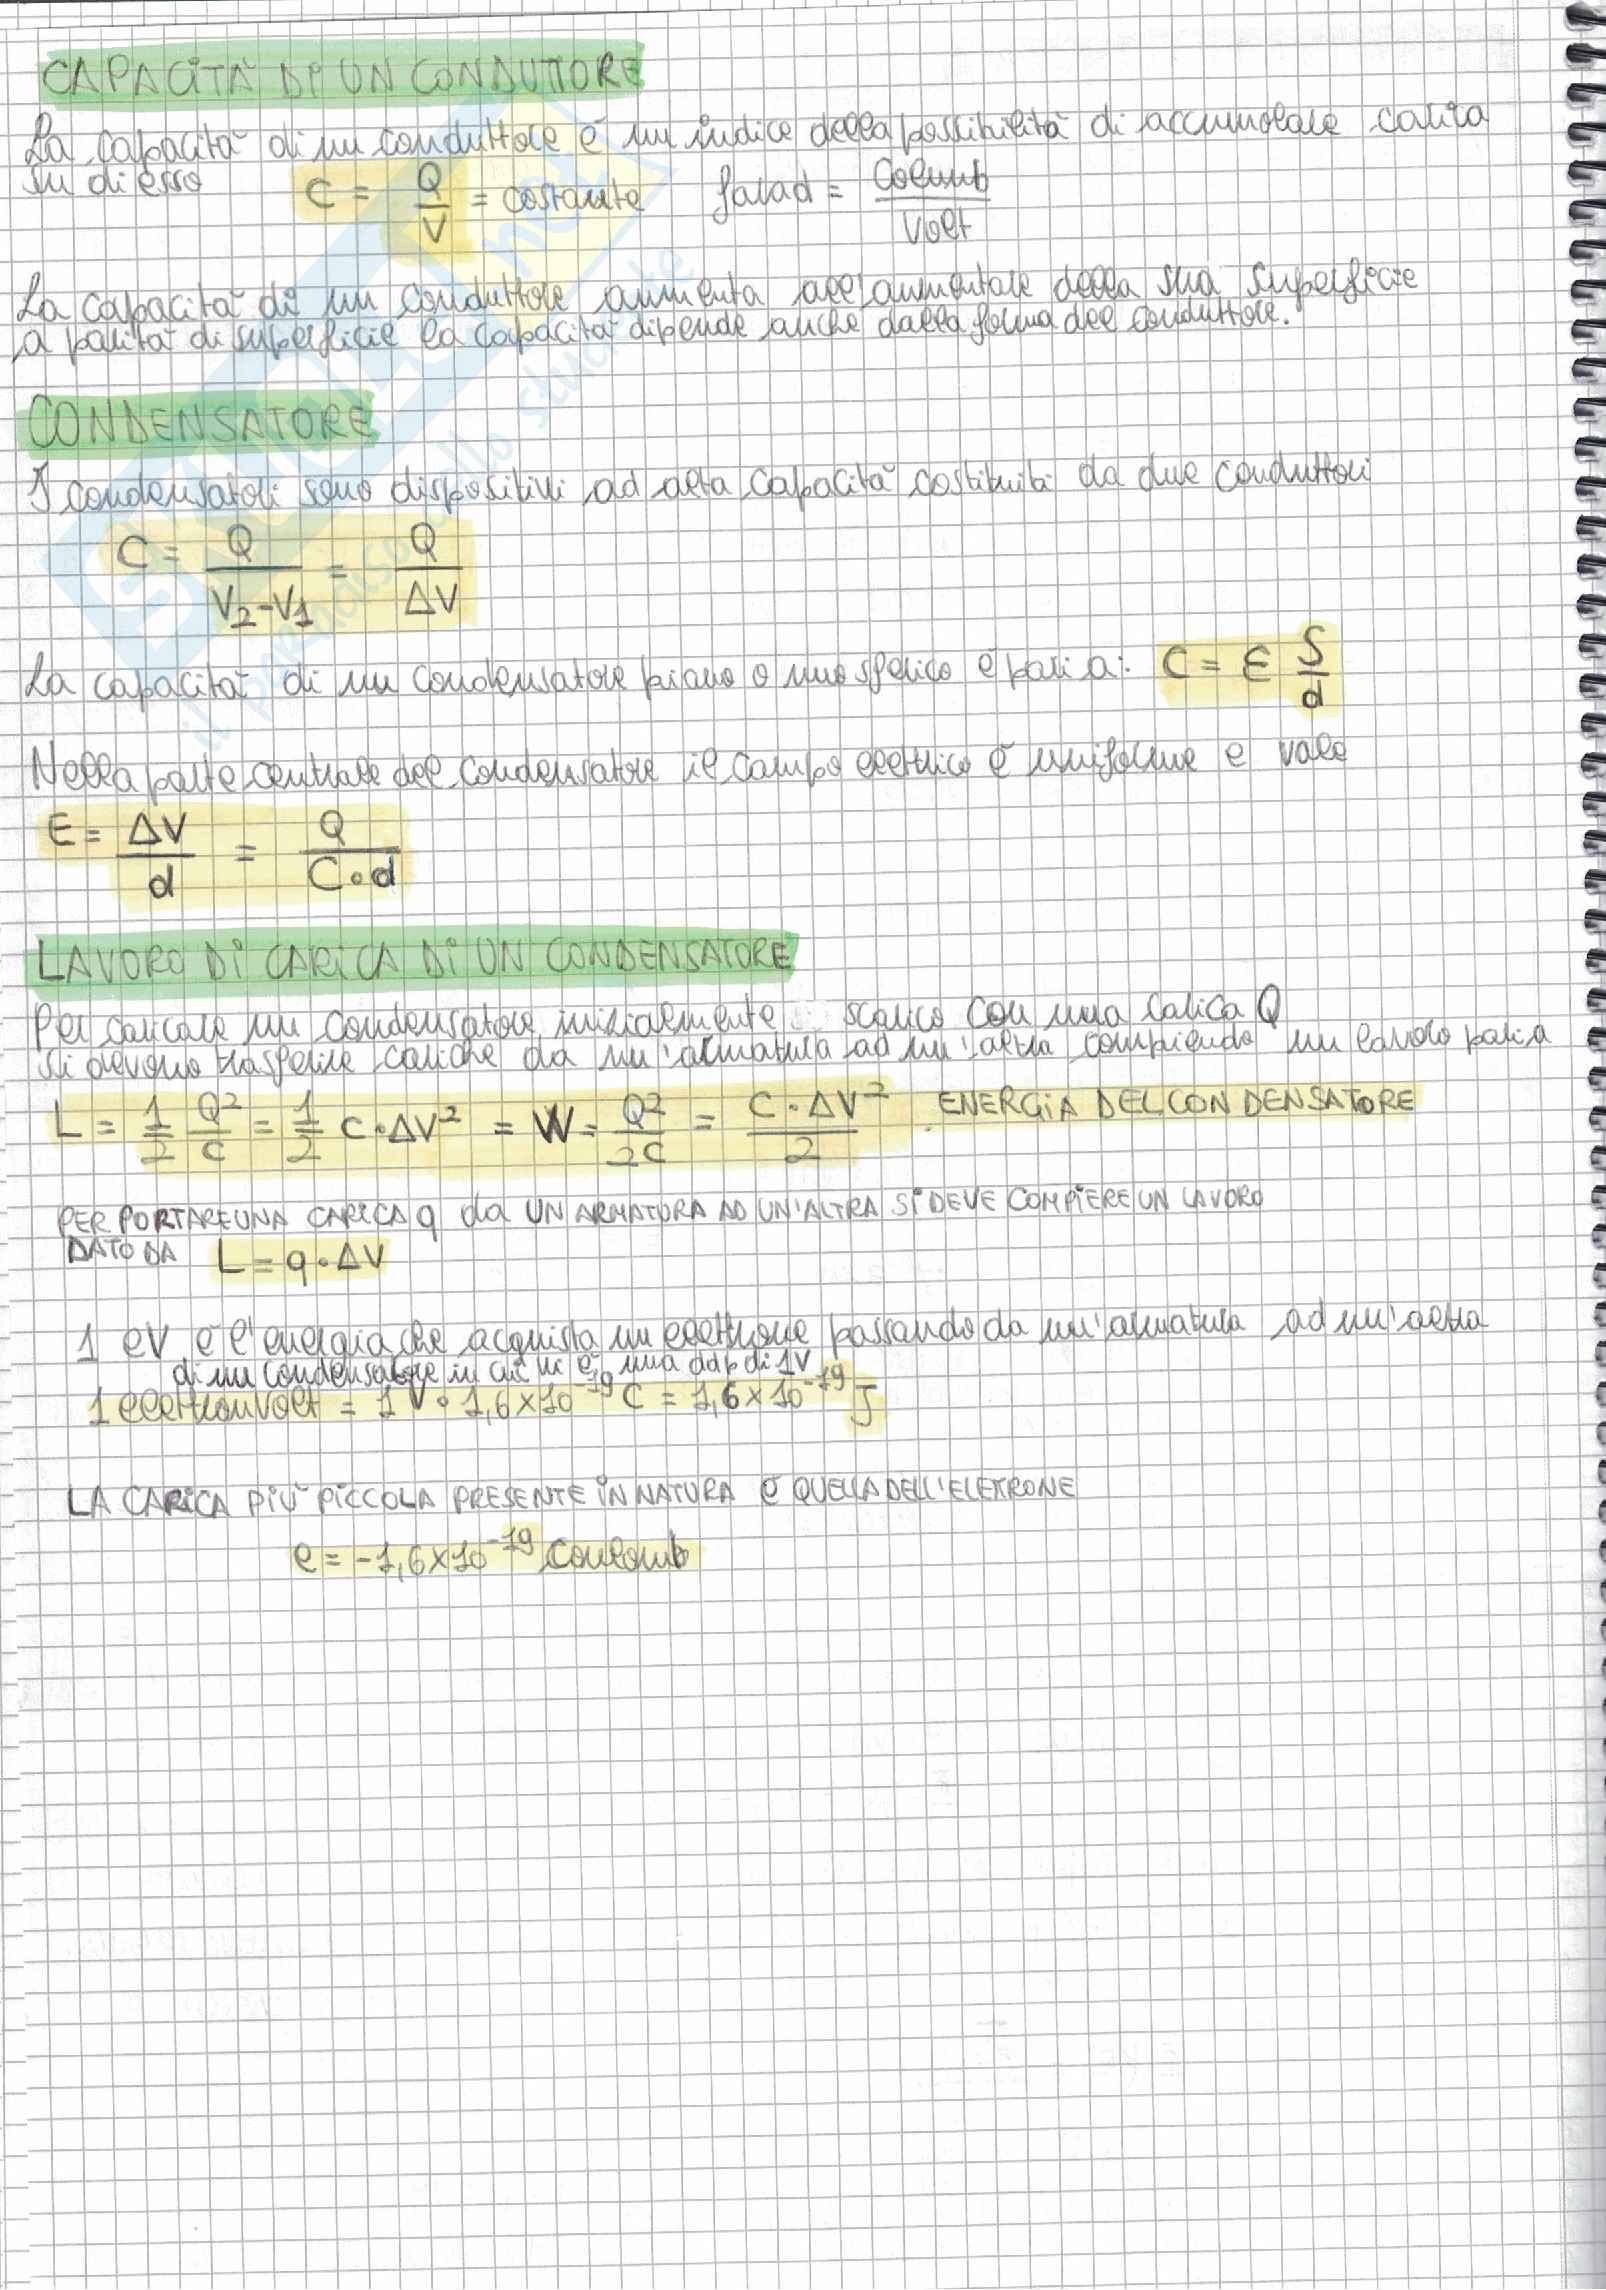 CAPACITÀ DI UN CONDUTTORE
La capacità di un conduttore è un indice della possibilità di accumolare carica
su di esso C = Q/V = costante farad = Coloumb/Volt
La capacità di un conduttore aumenta all'aumentare della sua superficie
a parità di superficie la capacità dipende anche dalla forma del conduttore.
CONDENSATORE
I condensatori sono dispositivi ad alta capacità costituiti da due conduttori
C = Q/(V2-V1) = Q/ΔV
La capacità di un condensatore piano o uno sferico è pari a: C = ε S/d
Nella parte centrale del condensatore il campo elettrico è uniforme e vale
E = ΔV/d = Q/(C·d)
LAVORO DI CARICA DI UN CONDENSATORE
Per caricare un condensatore inizialmente scarico con una carica Q
si devono trasferire cariche da un'armatura ad un'altra compiendo un lavoro pari a
L = 1/2 Q²/C = 1/2 C·ΔV² = W = Q²/2C = C·ΔV²/2 ENERGIA DEL CONDENSATORE
PER PORTARE UNA CARICA q da UN ARMATURA AD UN'ALTRA SI DEVE COMPIERE UN LAVORO
DATO DA L = q·ΔV
1 eV è l'energia che acquista un elettrone passando da un'armatura ad un'altra
di un condensatore in cui vi è una ddp di 1V
1 elettronvolt = 1 V · 1,6×10⁻¹⁹ C = 1,6×10⁻¹⁹ J
LA CARICA PIÙ PICCOLA PRESENTE IN NATURA È QUELLA DELL'ELETRONE
e = -1,6×10⁻¹⁹ Coulomb